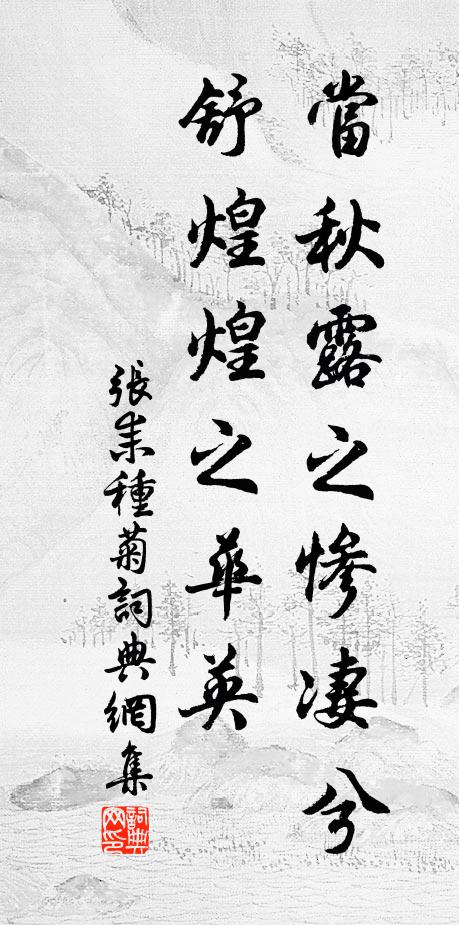 當秋露之慘凄兮
舒煌煌之華英
張耒種菊詞典網集
詞典網印